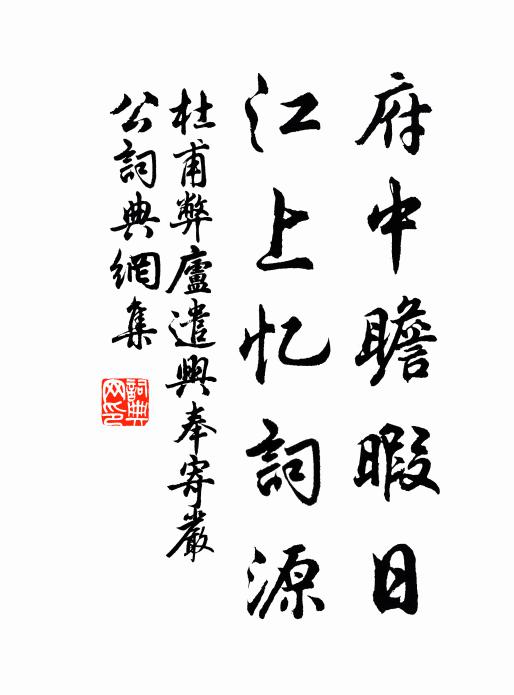 府中瞻暇日
江上忆詞源
杜甫弊廬遣興奉寄嚴
公詞典網集
詞典網印